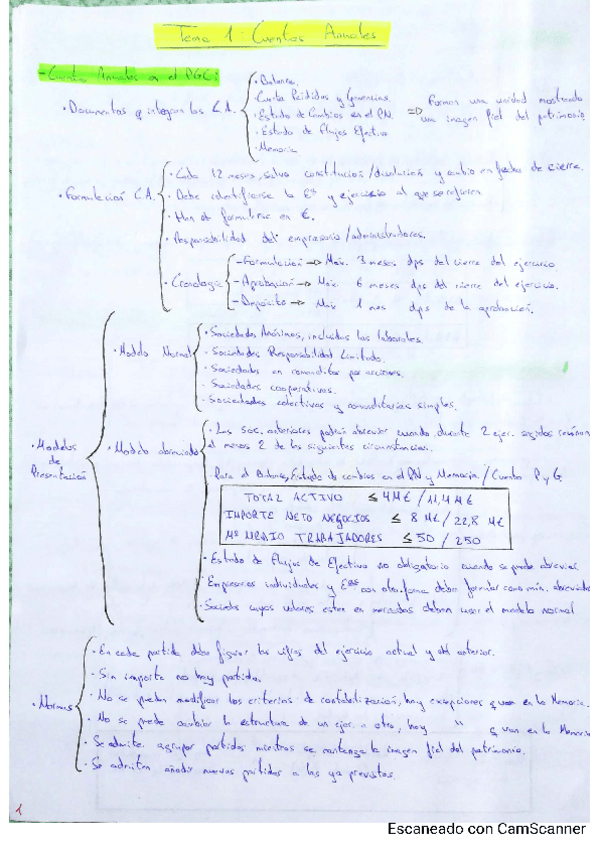 Tema 1: Cuentas Anuales
- Cuentas Anuales en el PGC:
· Documentos q integran las C.A.
· Balance.
· Cuenta Pérdidas y Ganancias.
· Estado de Cambios en el PN.
· Estado de Flujos Efectivo
· Memoria
=> Forman una unidad mostrando
una imagen fiel del patrimonio
· Formulación C.A.
· Cada 12 meses, salvo constitución/disolución y cambio en fecha de cierre.
· Debe identificarse la Eª y ejercicio al que se refieren
· Han de formularse en €.
· Responsabilidad del empresario/administradores.
· Cronología
- Formulación -> Máx. 3 meses dps del cierre del ejercicio
- Aprobación -> Máx. 6 meses dps del cierre del ejercicio.
- Depósito -> Máx 1 mes dps de la aprobación.
· Modelos
de
Presentación
· Modelo Normal
· Sociedades Anónimas, incluidas las laborales.
· Sociedades Responsabilidad Limitada.
· Sociedades en comanditas por acciones.
· Sociedades cooperativas.
· Sociedades colectivas y comanditarias simples.
· Modelo abreviado
· Las soc. anteriores podrán abreviar cuando durante 2 ejer. seguidos reúnan
al menos 2 de las siguientes circunstancias.
Para el Balance, Estado de cambios en el PN y Memoria / Cuenta P y G.
TOTAL ACTIVO ≤ 4 M€ / 11,4 M€
IMPORTE NETO NEGOCIOS ≤ 8 M€ / 22,8 M€
Nº MEDIO TRABAJADORES ≤ 50 / 250
· Estado de Flujos de Efectivo no obligatorio cuando se puede abreviar
· Empresarios individuales y Eªs con otra forma deben formular como mín. abreviadas
· Socieds cuyos valores esten en mercados deben usar el modelo normal
· Normas
· En cada partida debe figurar las cifras del ejercicio actual y del anterior.
· Sin importe no hay partida.
· No se pueden modificar los criterios de contabilización, hay excepciones q van en la Memoria.
· No se puede cambiar la estructura de un ejer. a otro, hay " q van en la Memoria
· Se admite agrupar partidas mientras se mantenga la imagen fiel del patrimonio.
· Se admiten añadir nuevas partidas a las ya previstas.
1
Escaneado con CamScanner